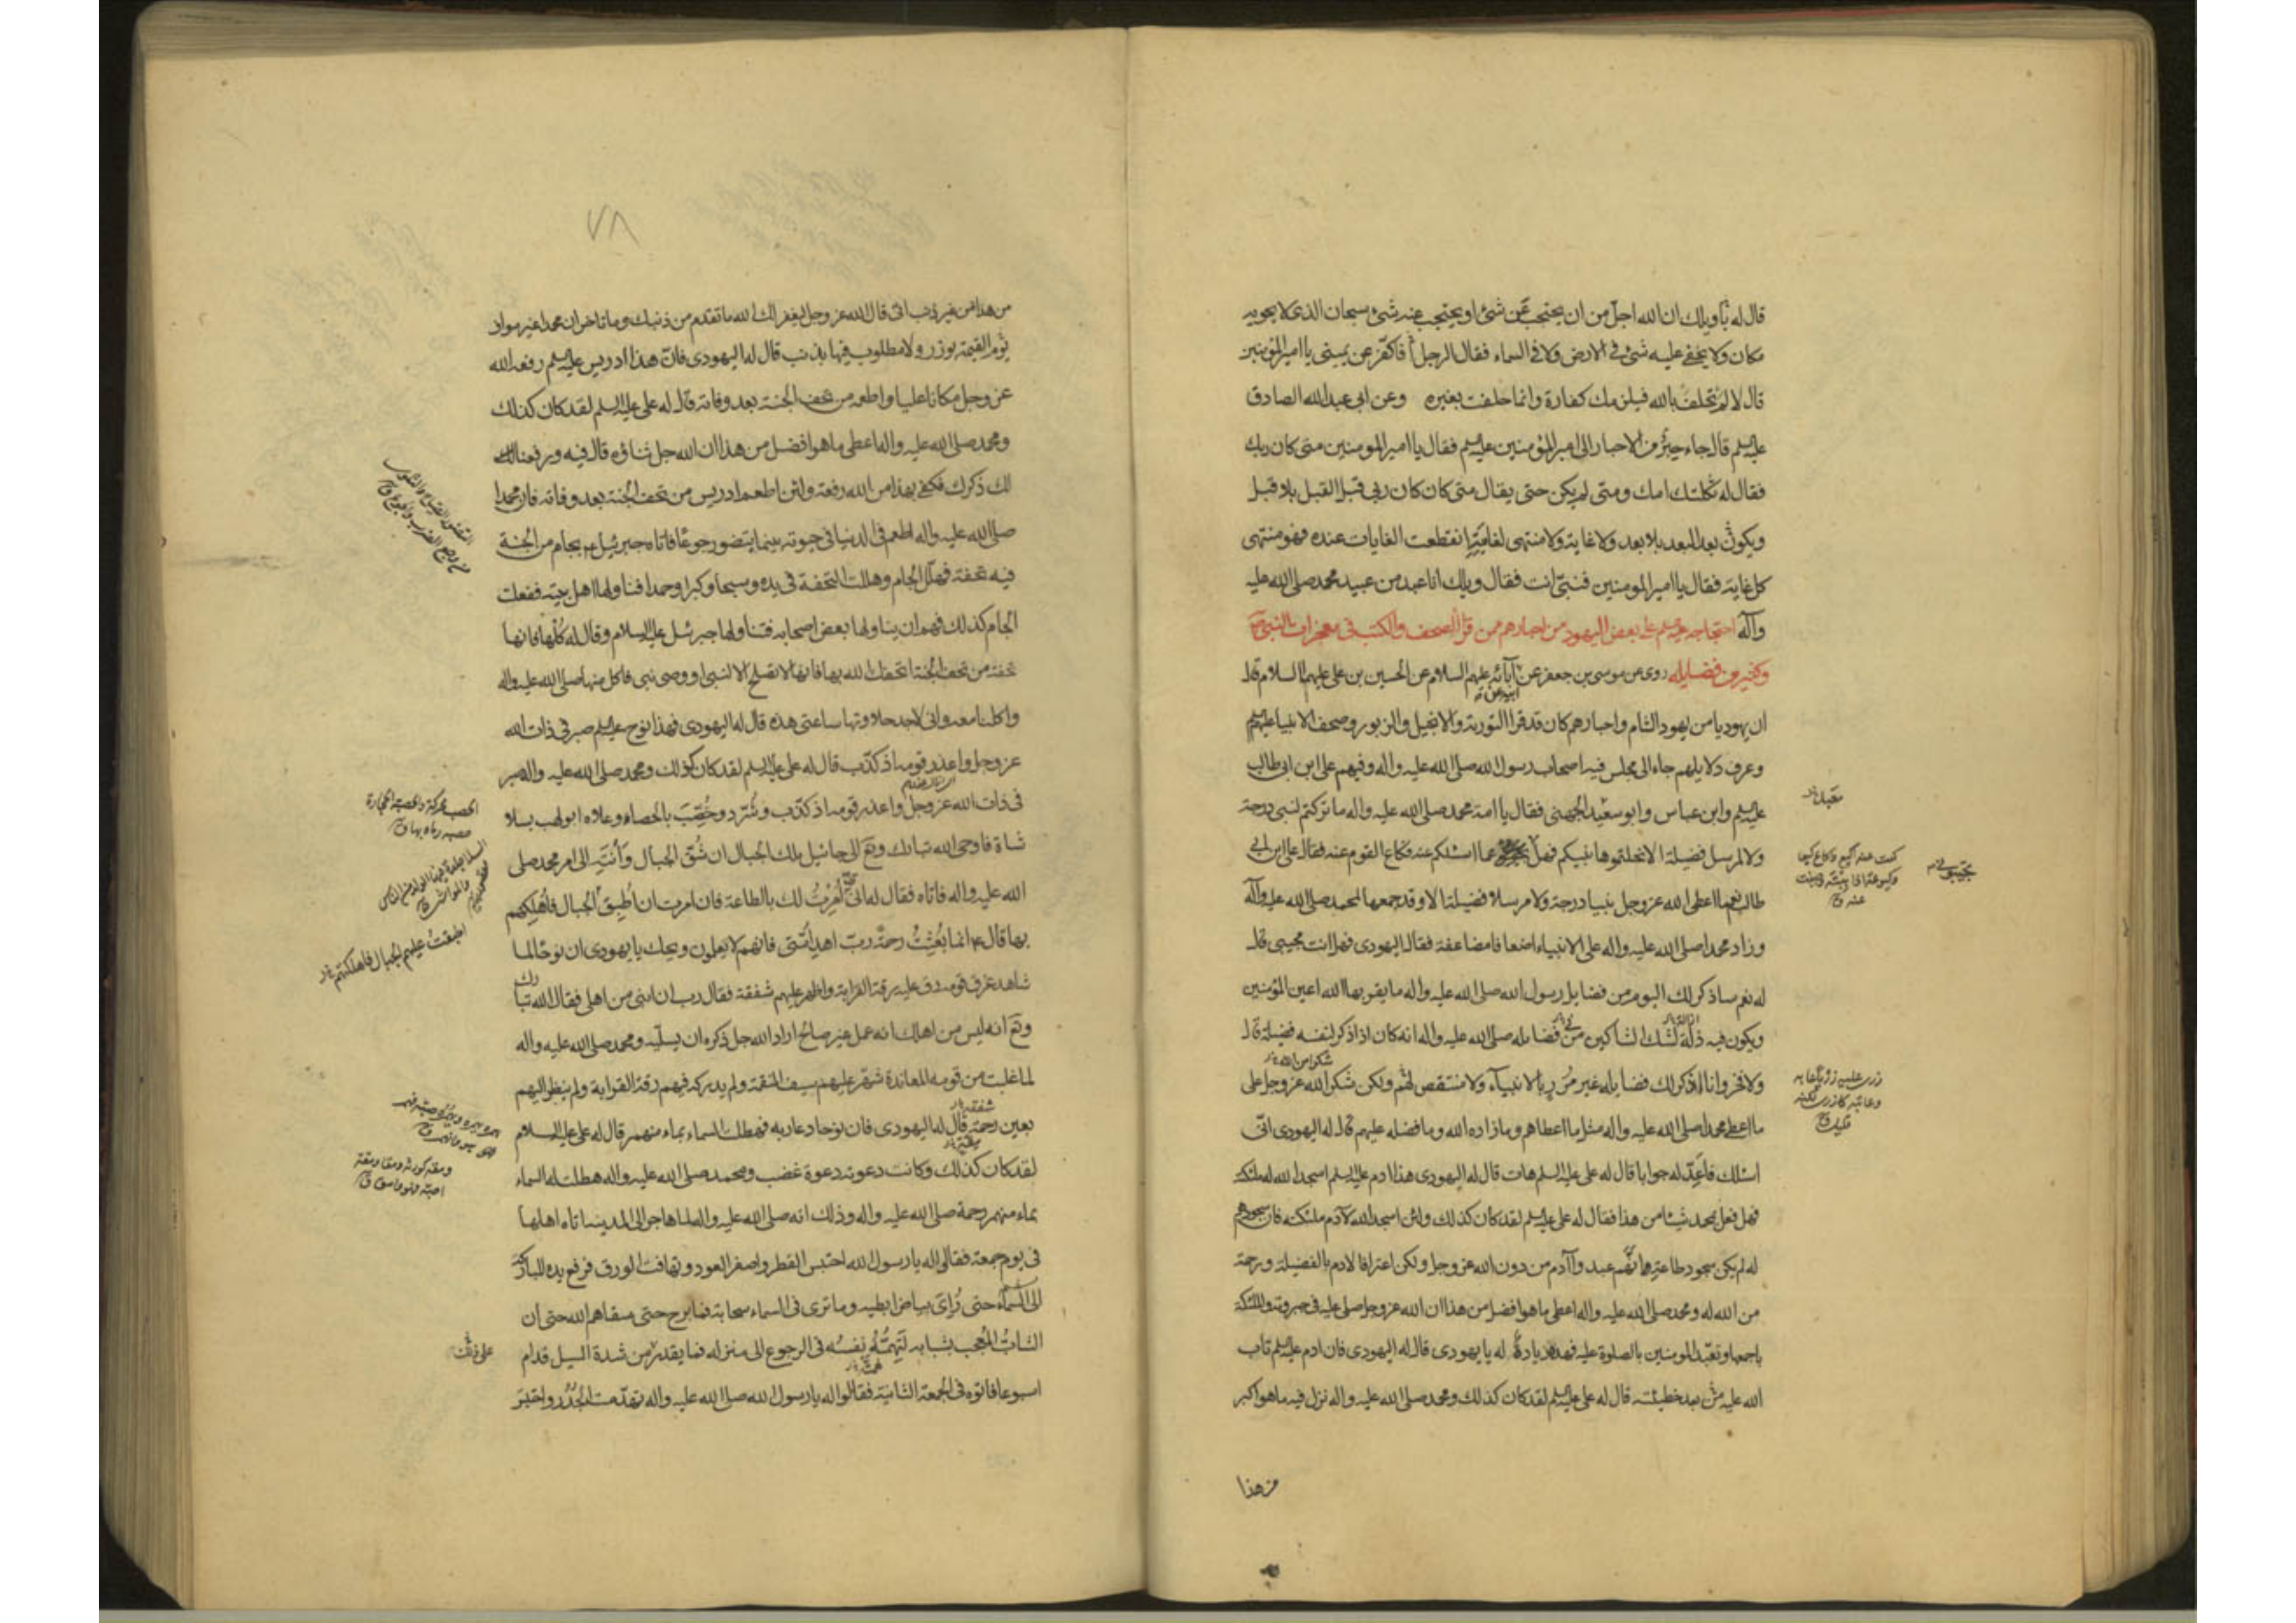 قال له يا ويلك ان الله اجل من ان يحتجب عن شئ او يحتجب عنه شئ سبحان الذى لا يحويه
مكان ولا يخفى عليه شئ فى الارض ولا فى السماء فقال الرجل أفاكفر عن يمينى يا امير المؤمنين
قال لا لم تحلف بالله فيلزمك كفارة وانما حلفت بغيره وعن ابى عبد الله الصادق
عليه السلم قال جاء حبر من الاحبار الى امير المؤمنين عليه السلم فقال يا امير المؤمنين متى كان ربك
فقال له ثكلتك امك ومتى لم يكن حتى يقال متى كان كان ربى قبل القبل بلا قبل
ويكون بعد البعد بلا بعد ولا غاية ولا منتهى لغايته انقطعت الغايات عنده فهو منتهى
كل غاية فقال يا امير المومنين فنبى انت فقال ويلك انا عبد من عبيد محمد صلى الله عليه
وآله احتجاجه عليه السلم على بعض اليهود من احبارهم ممن قرأ الصحف والكتب فى معجزات النبى
وكثير من فضايله روى عن موسى بن جعفر عن آبائه عليهم السلام عن الحسين بن على عليهما السلام قال
ان يهوديا من يهود الشام واحبارهم كان قد قرا التورية والانجيل والزبور وصحف الانبيا عليهم
وعرف دلايلهم جاء الى مجلس فيه اصحاب رسول الله صلى الله عليه واله وفيهم على ابن ابى طالب
عليه السلم وابن عباس وابو سعيد الجهنى فقال يا امة محمد صلى الله عليه واله ما تركتم لنبى درجة
ولا لمرسل فضيلة الا نحلتموها نبيكم فهل عما اسئلكم عنه فكاع القوم عنه فقال على ابن ابى
طالب نعم ما اعطى الله عز وجل نبيا درجة ولا مرسلا فضيلة الا وقد جمعها لمحمد صلى الله عليه وآله
وزاد محمدا صلى الله عليه واله على الانبياء اضعافا مضاعفة فقال اليهودى فهل انت مجيبى قال
له نعم ساذكر لك اليوم من فضايل رسول الله صلى الله عليه واله ما يقر بها الله اعين المؤمنين
ويكون فيه لشك الشاكين فى فضايله صلى الله عليه واله انه كان اذا ذكر لنفسه فضيلة قال
ولا فخر وانا اذكر لك فضايله غير مزر بالانبياء ولا منتقص لهم ولكن شكر الله عز وجل على
ما اعطى محمدا صلى الله عليه واله مثل ما اعطاهم وما زاده الله وما فضله عليهم قال له اليهودى انى
اسئلك فاعد له جوابا قال له على عليه السلم هات قال له اليهودى هذا ادم عليه السلم اسجد الله له ملئكته
فهل فعل بمحمد شيئا من هذا فقال له على عليه السلم لقد كان كذلك ولئن اسجد الله لآدم ملئكته فان سجودهم
له لم يكن سجود طاعة وانهم عبدوا آدم من دون الله عز وجل ولكن اعترافا لادم بالفضيلة ورحمة
من الله له ومحمد صلى الله عليه واله اعطى ما هو افضل من هذا ان الله عز وجل صلى عليه فى جبروته والملئكة
باجمعها وتعبد المومنين بالصلوة عليه فهذه زيادة له يا يهودى قال له اليهودى فان ادم عليه السلم تاب
الله عليه من بعد خطيئته قال له على عليه السلم لقد كان كذلك ومحمد صلى الله عليه واله نزل فيه ما هو اكبر
من هذا
٧٨
من هذا من غير ذنب اتى قال الله عز وجل ليغفر لك الله ما تقدم من ذنبك وما تاخر ان محمدا غير مواف
يوم القيمة بوزر ولا مطلوب فيها بذنب قال له اليهودى فان هذا ادريس عليه السلم رفعه الله
عز وجل مكانا عليا واطعمه من تحف الجنة بعد وفاته قال له على عليه السلم لقد كان كذلك
ومحمد صلى الله عليه واله اعطى ما هو افضل من هذا ان الله جل ثناؤه قال فيه ورفعنا
لك ذكرك فكفى بهذا من الله رفعة ولئن اطعم ادريس من تحف الجنة بعد وفاته فان محمدا
صلى الله عليه واله اطعم فى الدنيا فى حيوته بينما يتضور جوعا فاتاه جبرئيل عم بجام من الجنة
فيه تحفة فهلل الجام وهللت التحفة فى يده وسبحا وكبرا وحمدا فناولها اهل بيته ففعلت
الجام كذلك فهم ان يناولها بعض اصحابه فتناولها جبرئيل عليه السلام وقال له كلها فانها
تحفة من تحف الجنة اتحفك الله بها فانها لا تصلح الا لنبى او وصى نبى فاكل منها صلى الله عليه واله
واكلنا معه وانى لاجد حلاوتها ساعتى هذه قال له اليهودى فهذا نوح عليه السلم صبر فى ذات الله
عز وجل واعذر قومه اذ كذب قال له على عليه السلم لقد كان كذلك ومحمد صلى الله عليه واله صبر
فى ذات الله عز وجل واعذر قومه اذ كذب وشرد وحصب بالحصاه وعلاه ابو لهب بسلا
شاة فاوحى الله تبارك وتع الى جائيل ملك الجبال ان شق الجبال وانته الى امر محمد صلى
الله عليه واله فاتاه فقال له انى امرت لك بالطاعة فان امرت ان اطبق الجبال فاهلكتهم
بها قال انما بعثت رحمة رب اهد امتى فانهم لا يعلمون ويحك يا يهودى ان نوحا لما
شاهد غرق قومه رق عليه رقة القرابة واظهر عليهم شفقة فقال رب ان ابنى من اهلى فقال الله تبارك
وتع انه ليس من اهلك انه عمل غير صالح اراد الله جل ذكره ان يسليه ومحمد صلى الله عليه واله
لما غلبت من قومه المعاندة شهر عليهم سيف النقمة ولم يدركه فيهم رقة القرابة ولم ينظر اليهم
بعين رحمة قال له اليهودى فان نوحا دعا ربه فهطلت السماء بماء منهمر قال له على عليه السلام
لقد كان كذلك وكانت دعوته دعوة غضب ومحمد صلى الله عليه واله هطلت له السماء
بماء منهمر رحمة صلى الله عليه واله وذلك انه صلى الله عليه واله لما هاجر الى المدينة اتاه اهلها
فى يوم جمعة فقالوا له يا رسول الله احتبس القطر واصفر العود وتهافت الورق فرفع يده المباركة
الى السماء حتى رأى بياض ابطيه وما ترى فى السماء سحابة فما برح حتى سقاهم الله حتى ان
الشاب المعجب بشبابه لتهمه نفسه فى الرجوع الى منزله فما يقدر من شدة السيل قدام
اسبوعا فاتوه فى الجمعة الثانية فقالوا له يا رسول الله صلى الله عليه واله تهدمت الجدر واحتبس
اطبقت عليهم الجبال فاهلكتهم